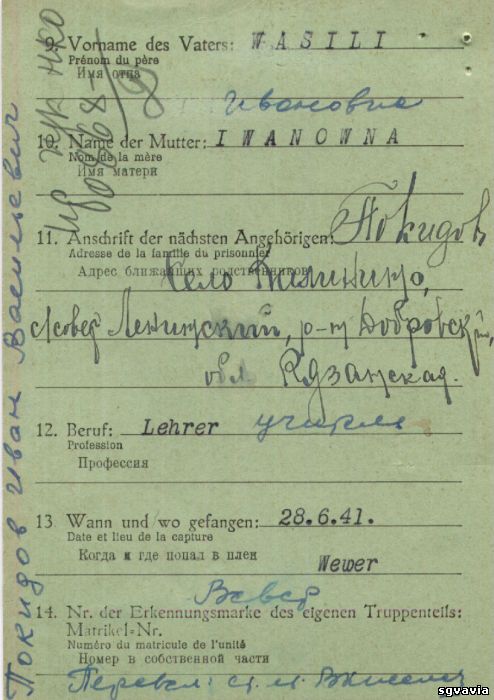 9. Vorname des Vaters: WASILI
Prénom du père
Имя отца
Ивановна
10. Name der Mutter: IWANOWNA
Nom de la mère
Имя матери
11. Anschrift der nächsten Angehörigen: Покидов
Adresse de la famille du prisonnier
Адрес ближайших родственников
Село
Ленинский, р-н Добровский,
обл Рязанская.
12. Beruf: Lehrer учитель
Profession
Профессия
13 Wann und wo gefangen: 28.6.41.
Date et lieu de la capture
Когда и где попал в плен
Wewer
Вевер
14. Nr. der Erkennungsmarke des eigenen Truppenteils:
Matrikel-Nr.
Numéro du matricule de l'unité
Номер в собственной части
Перевел:
Покидов Иван Васильевич
sgvavia